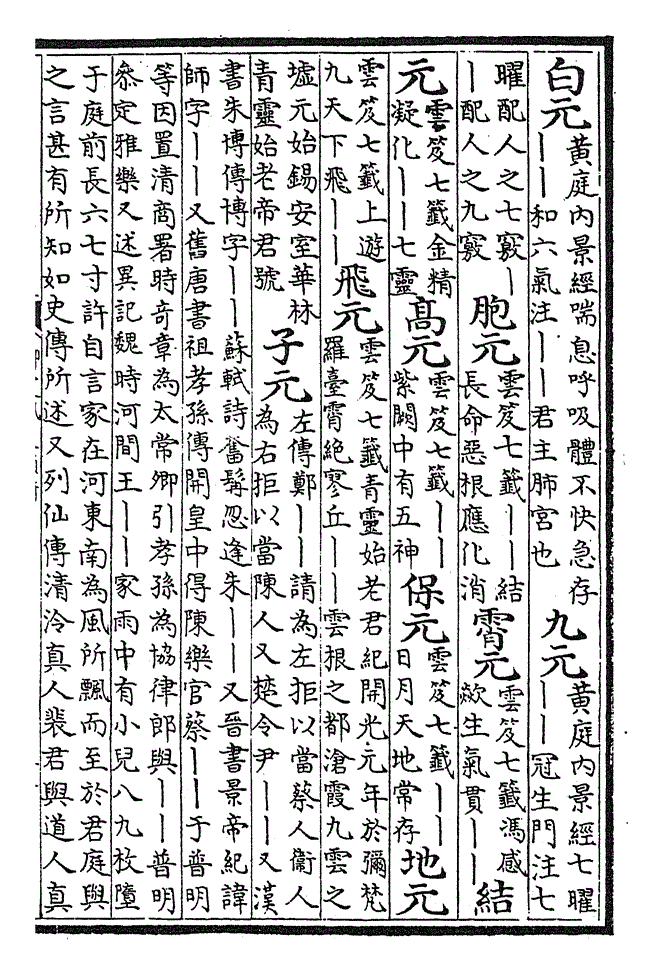 白元黃庭內景經喘息呼吸體不快急存
｜｜和六氣注｜｜君主肺宮也
九元黃庭內景經七曜
｜｜冠生門注七
曜配人之七竅｜
｜配人之九竅
胞元雲笈七籤｜｜結
長命惡根應化消
霄元雲笈七籤馮感
歘生氣貫｜｜
結
元雲笈七籤金精
凝化｜｜七靈
髙元雲笈七籤｜｜
紫闕中有五神
保元雲笈七籤｜｜
日月天地常存
地元
雲笈七籤上遊
九天下飛｜｜
飛元雲笈七籤青靈始老君紀開光元年於彌梵
羅臺霄絶寥丘｜｜雲根之都滄霞九雲之
墟元始錫安室華林
青靈始老帝君號
子元左傳鄭｜｜請為左拒以當蔡人衞人
為右拒以當陳人又楚令尹｜｜又漢
書朱博傳博字｜｜蘇軾詩奮髯忍逢朱｜｜又晉書景帝紀諱
師字｜｜又舊唐書祖孝孫傳開皇中得陳樂官蔡｜｜于普明
等因置清商署時竒章為太常卿引孝孫為協律郎與｜｜普明
叅定雅樂又述異記魏時河間王｜｜家雨中有小兒八九枚墮
于庭前長六七寸許自言家在河東南為風所飄而至於君庭與
之言甚有所知如史傳所述又列仙傳清泠真人裴君與道人真